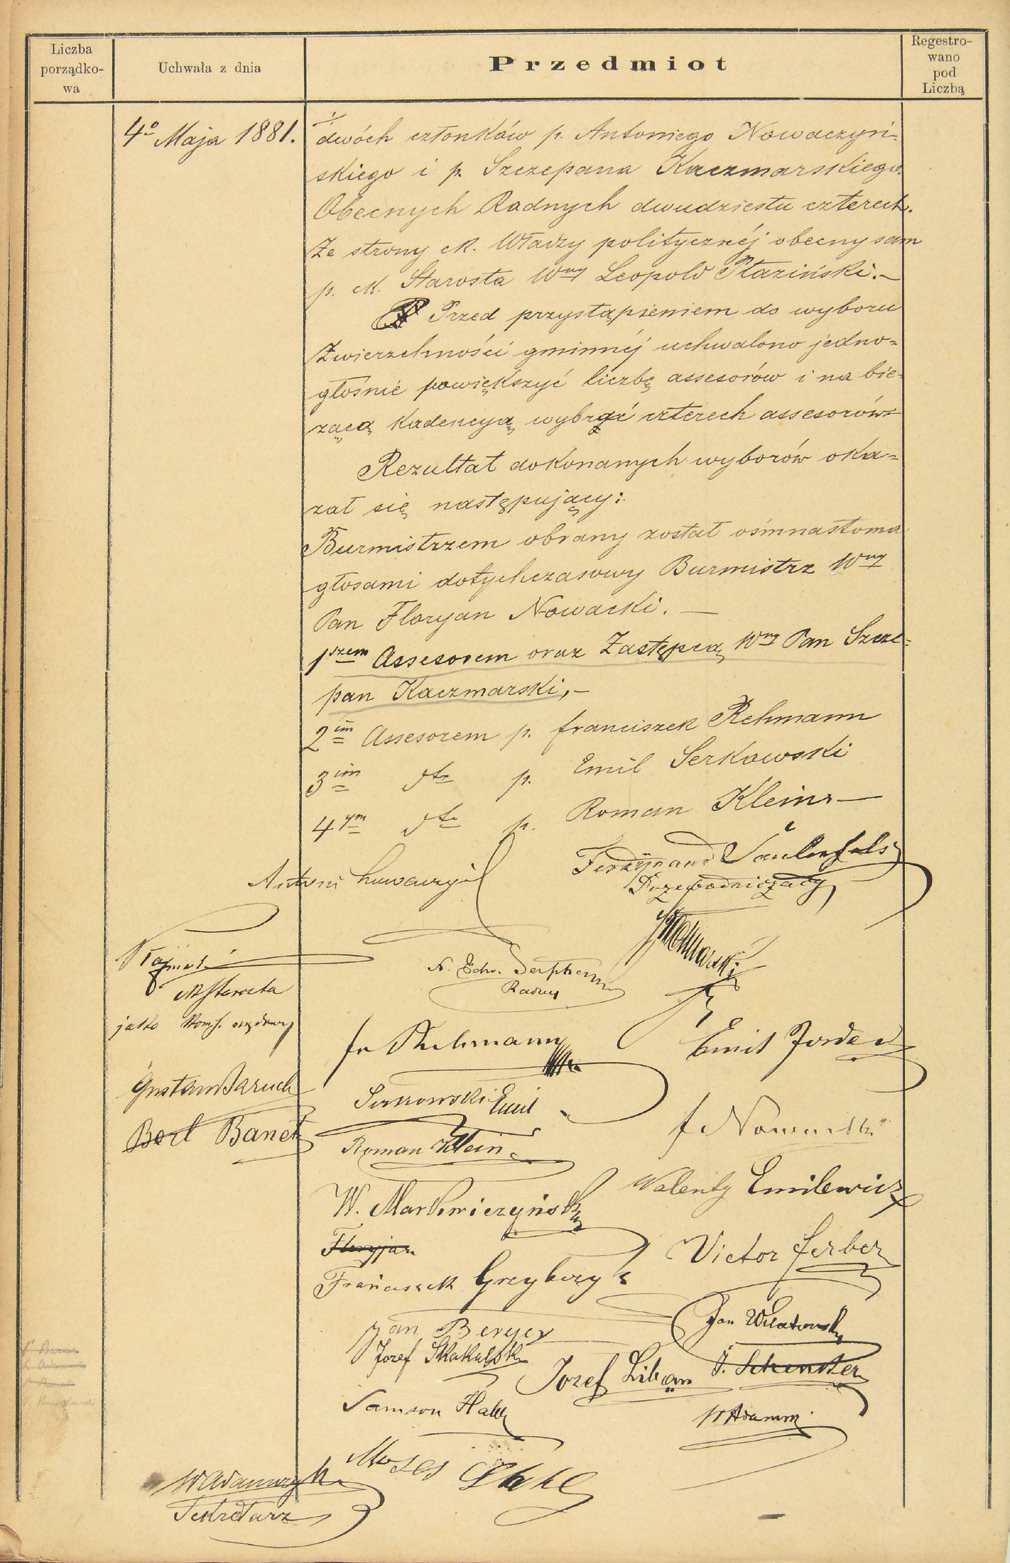 Liczba
porządko-
wa
Uchwała z dnia
Przedmiot
Regestro-
wano
pod
Liczbą
4º Maja 1881.
dwóch członków p. Antoniego Nowaczyń-
skiego i p. Szczepana Kaczmarskiego.
Obecnych Radnych dwudziestu czterech.
Ze strony ck. Władzy politycznéj obecny sam
p. ck. Starosta Wny Leopold Płaziński.—
Przed przystąpieniem do wyboru
Zwierzchności gminnéj uchwalono jedno-
głośnie powiększyć liczbę assesorów i na bie-
żącą kadencyą wybrać czterech assesorów-
Rezultat dokonanych wyborów oka-
zał się następujący:
Burmistrzem obrany został ośmnastoma
głosami dotychczasowy Burmistrz Wny
Pan Floryan Nowacki. —
1szem Assesorem oraz Zastępcą Wny Pan Szcze-
pan Kaczmarski,—
2im Assesorem p. franciszek Rehmann
3im dto p. Emil Serkowski
4ym dto p. Roman Klein—
Ferdynand
Przewodniczący
Antoni
ck Starosta
jako
N. Edw.
Radny
fr Rehmann
Emil
Gustaw Baruch
Serkowski Emil
Banet
Roman Klein
Walenty Emilewicz
W. Markwiczyński
Floryjan
Victor ferber
Franciszek
Jan
Jan Berger
Józef Skakalski
Józef Liban
Samson
W Adamczyk
Sekretarz